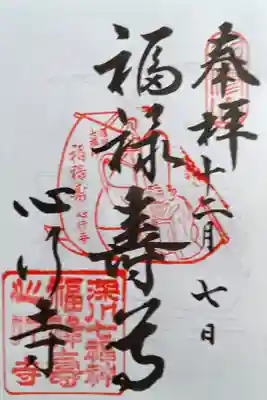 奉拝
十二月七日
福禄寿尊
心行寺
福禄寿 心行寺
深川七福神
福禄寿
心行寺